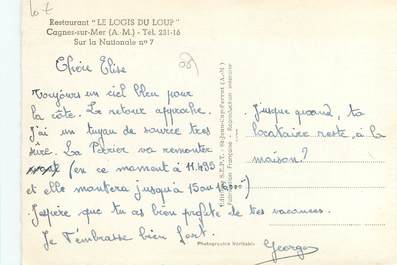 Restaurant "LE LOGIS DU LOUP"
Cagnes-sur-Mer (A.M.) - Tél. 231-16
Sur la Nationale n° 7
Chère Elise
Toujours un ciel bleu pour
la côte. Le retour approche.
J'ai un tuyau de source très
sûre. La Perrier va remonter
(en ce moment à 11.495
et elle montera jusqu'à 15 ou 16000)
J'espère que tu as bien profité de tes vacances.
Je t'embrasse bien fort.
Georges
jusque quand, ta
locataire reste à la
maison?
Fabrication Française - Reproduction interdite
Photographie Véritable